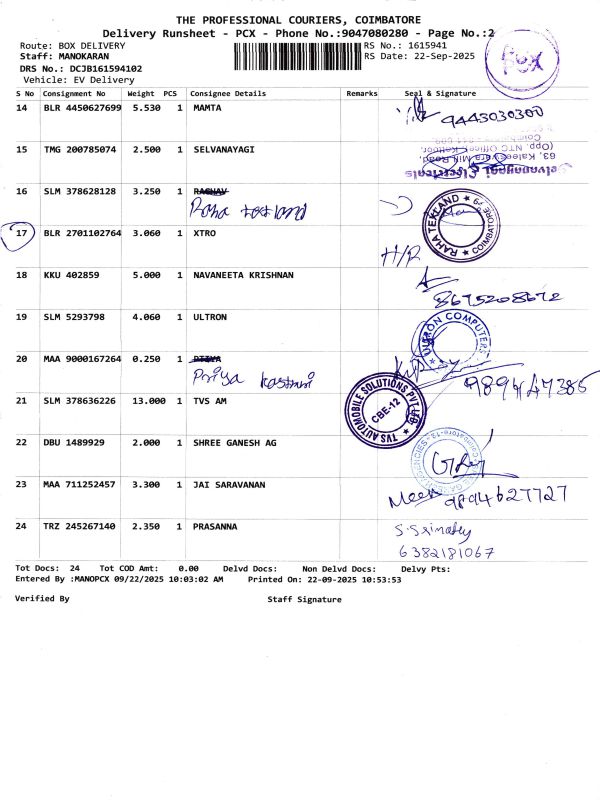 THE PROFESSIONAL COURIERS, COIMBATORE
Delivery Runsheet - PCX - Phone No.:9047080280 - Page No.:2
Route: BOX DELIVERY RS No.: 1615941
Staff: MANOKARAN RS Date: 22-Sep-2025
DRS No.: DCJB161594102
Vehicle: EV Delivery
PCX
S No Consignment No Weight PCS Consignee Details Remarks Seal & Signature
14 BLR 4450627699 5.530 1 MAMTA
9443030300
15 TMG 200785074 2.500 1 SELVANAYAGI
Selvanayagi Electricals
63, Kaleeswara Mill Road,
(Opp. NTC Office) Kattoor,
16 SLM 378628128 3.250 1 RAGHAV
Raha texland
RAHA TEXLAND ★ COIMBATORE-9 ★
17 BLR 2701102764 3.060 1 XTRO
H/R
18 KKU 402859 5.000 1 NAVANEETA KRISHNAN
8675208672
19 SLM 5293798 4.060 1 ULTRON
ULTRON COMPUTERS
20 MAA 9000167264 0.250 1 PRIYA
Priya kasturi
9894447385
21 SLM 378636226 13.000 1 TVS AM
TVS AUTOMOBILE SOLUTIONS PVT LTD
CBE-12
22 DBU 1489929 2.000 1 SHREE GANESH AG
23 MAA 711252457 3.300 1 JAI SARAVANAN
Meen 9894627727
24 TRZ 245267140 2.350 1 PRASANNA
6382181067
Tot Docs: 24 Tot COD Amt: 0.00 Delvd Docs: Non Delvd Docs: Delvy Pts:
Entered By :MANOPCX 09/22/2025 10:03:02 AM Printed On: 22-09-2025 10:53:53
Verified By Staff Signature